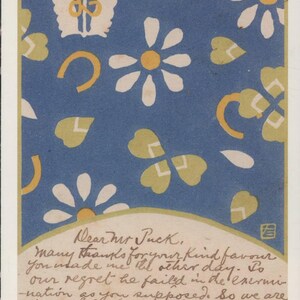 Dear Mr Puck,
Many thanks for your kind favour
you made me the other day. To
our regret he failed in the exami-
nation as you supposed. So we are